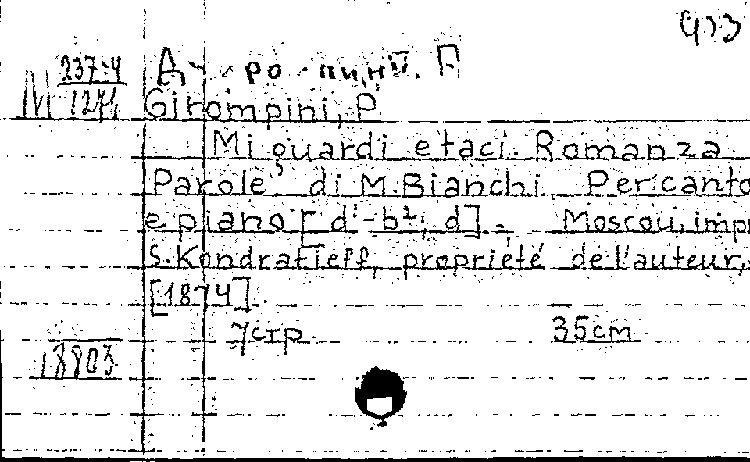 M 237-4
1271
Girompini, P
Mi guardi e taci. Romanza
Parole di M. Bianchi Per canto
e piano [d'-b²; d]. Moscou, impr
S. Kondratieff, propriété de l'auteur,
[1874].
7стр 35cm
18803